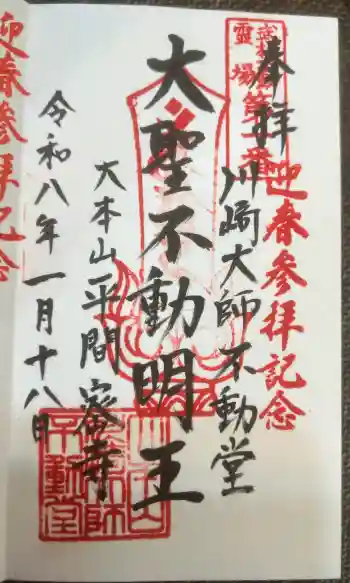 奉拝
迎春参拝記念
霊場
第一番
川崎大師不動堂
大聖不動明王
大本山平間密寺
令和八年一月十八日
川崎大師不動堂
迎春参拝記念